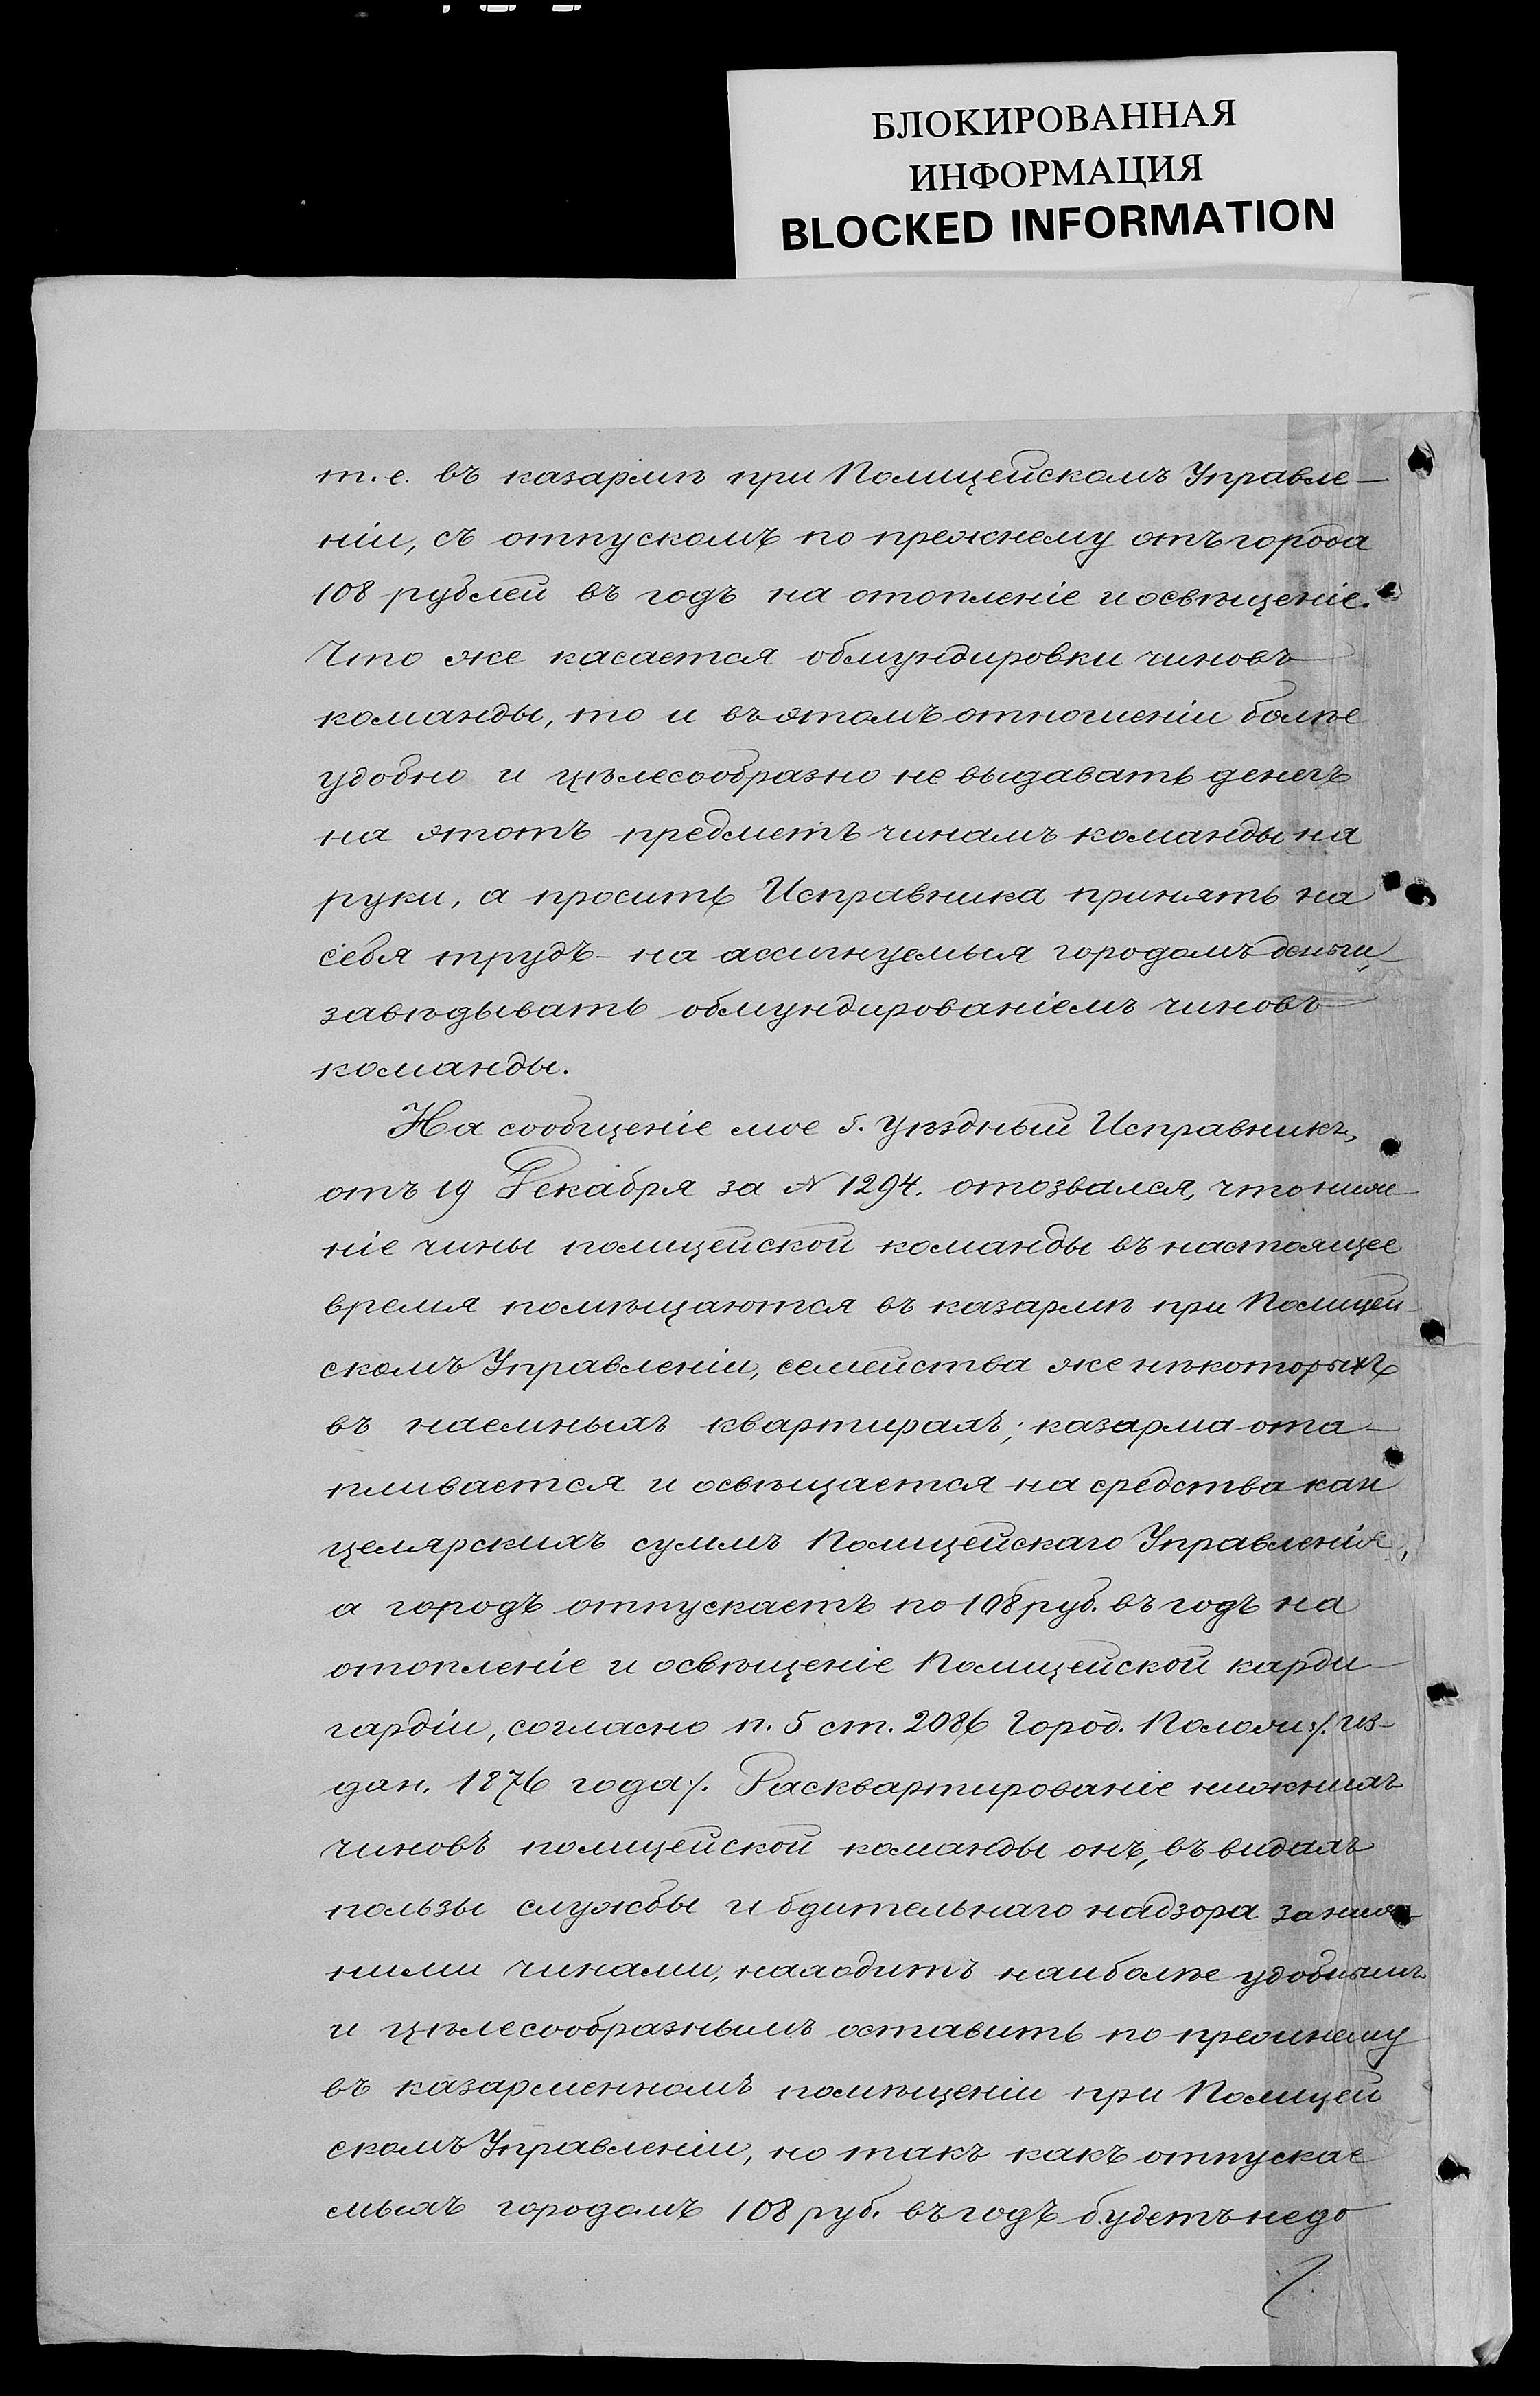 БЛОКИРОВАННАЯ
ИНФОРМАЦИЯ
BLOCKED INFORMATION
т. е. въ казармѣ при Полицейскомъ Управле-
нiи, съ отпускомъ по прежнему отъ города
108 рублей въ годъ на отопленiе и освѣщенiе.
Что же касается обмундировки чиновъ
команды, то и въ этомъ отношенiи болѣе
удобно и цѣлесообразно не выдавать денегъ
на этотъ предметъ чинамъ команды на
руки, а просить Исправника принять на
себя трудъ - на ассигнуемыя городомъ деньги,
завѣдывать обмундированiемъ чиновъ
команды.
На сообщенiе мое г. Уѣздный Исправникъ,
отъ 19 Декабря за № 1294. отозвался, что ниж-
нiе чины полицейской команды въ настоящее
время помѣщаются въ казармѣ при Полицей
скомъ Управленiи, семейства же нѣкоторыхъ
въ наемныхъ квартирахъ; казарма ота-
пливается и освѣщается на средства кан
целярскихъ суммъ Полицейскаго Управленiя,
а городъ отпускаетъ по 108 руб. въ годъ на
отопленiе и освѣщенiе Полицейской карди-
гардiи, согласно п. 5 ст. 2086 Город. Полож. /. из-
дан. 1876 года /. Расквартированiе нижнихъ
чиновъ полицейской команды онъ, въ видахъ
пользы службы и бдительнаго надзора за ниж-
ними чинами, находитъ наиболѣе удобнымъ
и цѣлесообразнымъ оставить по прежнему
въ казарменномъ помѣщенiи при Полицей
скомъ Управленiи, но такъ какъ отпускае
мыхъ городомъ 108 руб. въ годъ будетъ недо